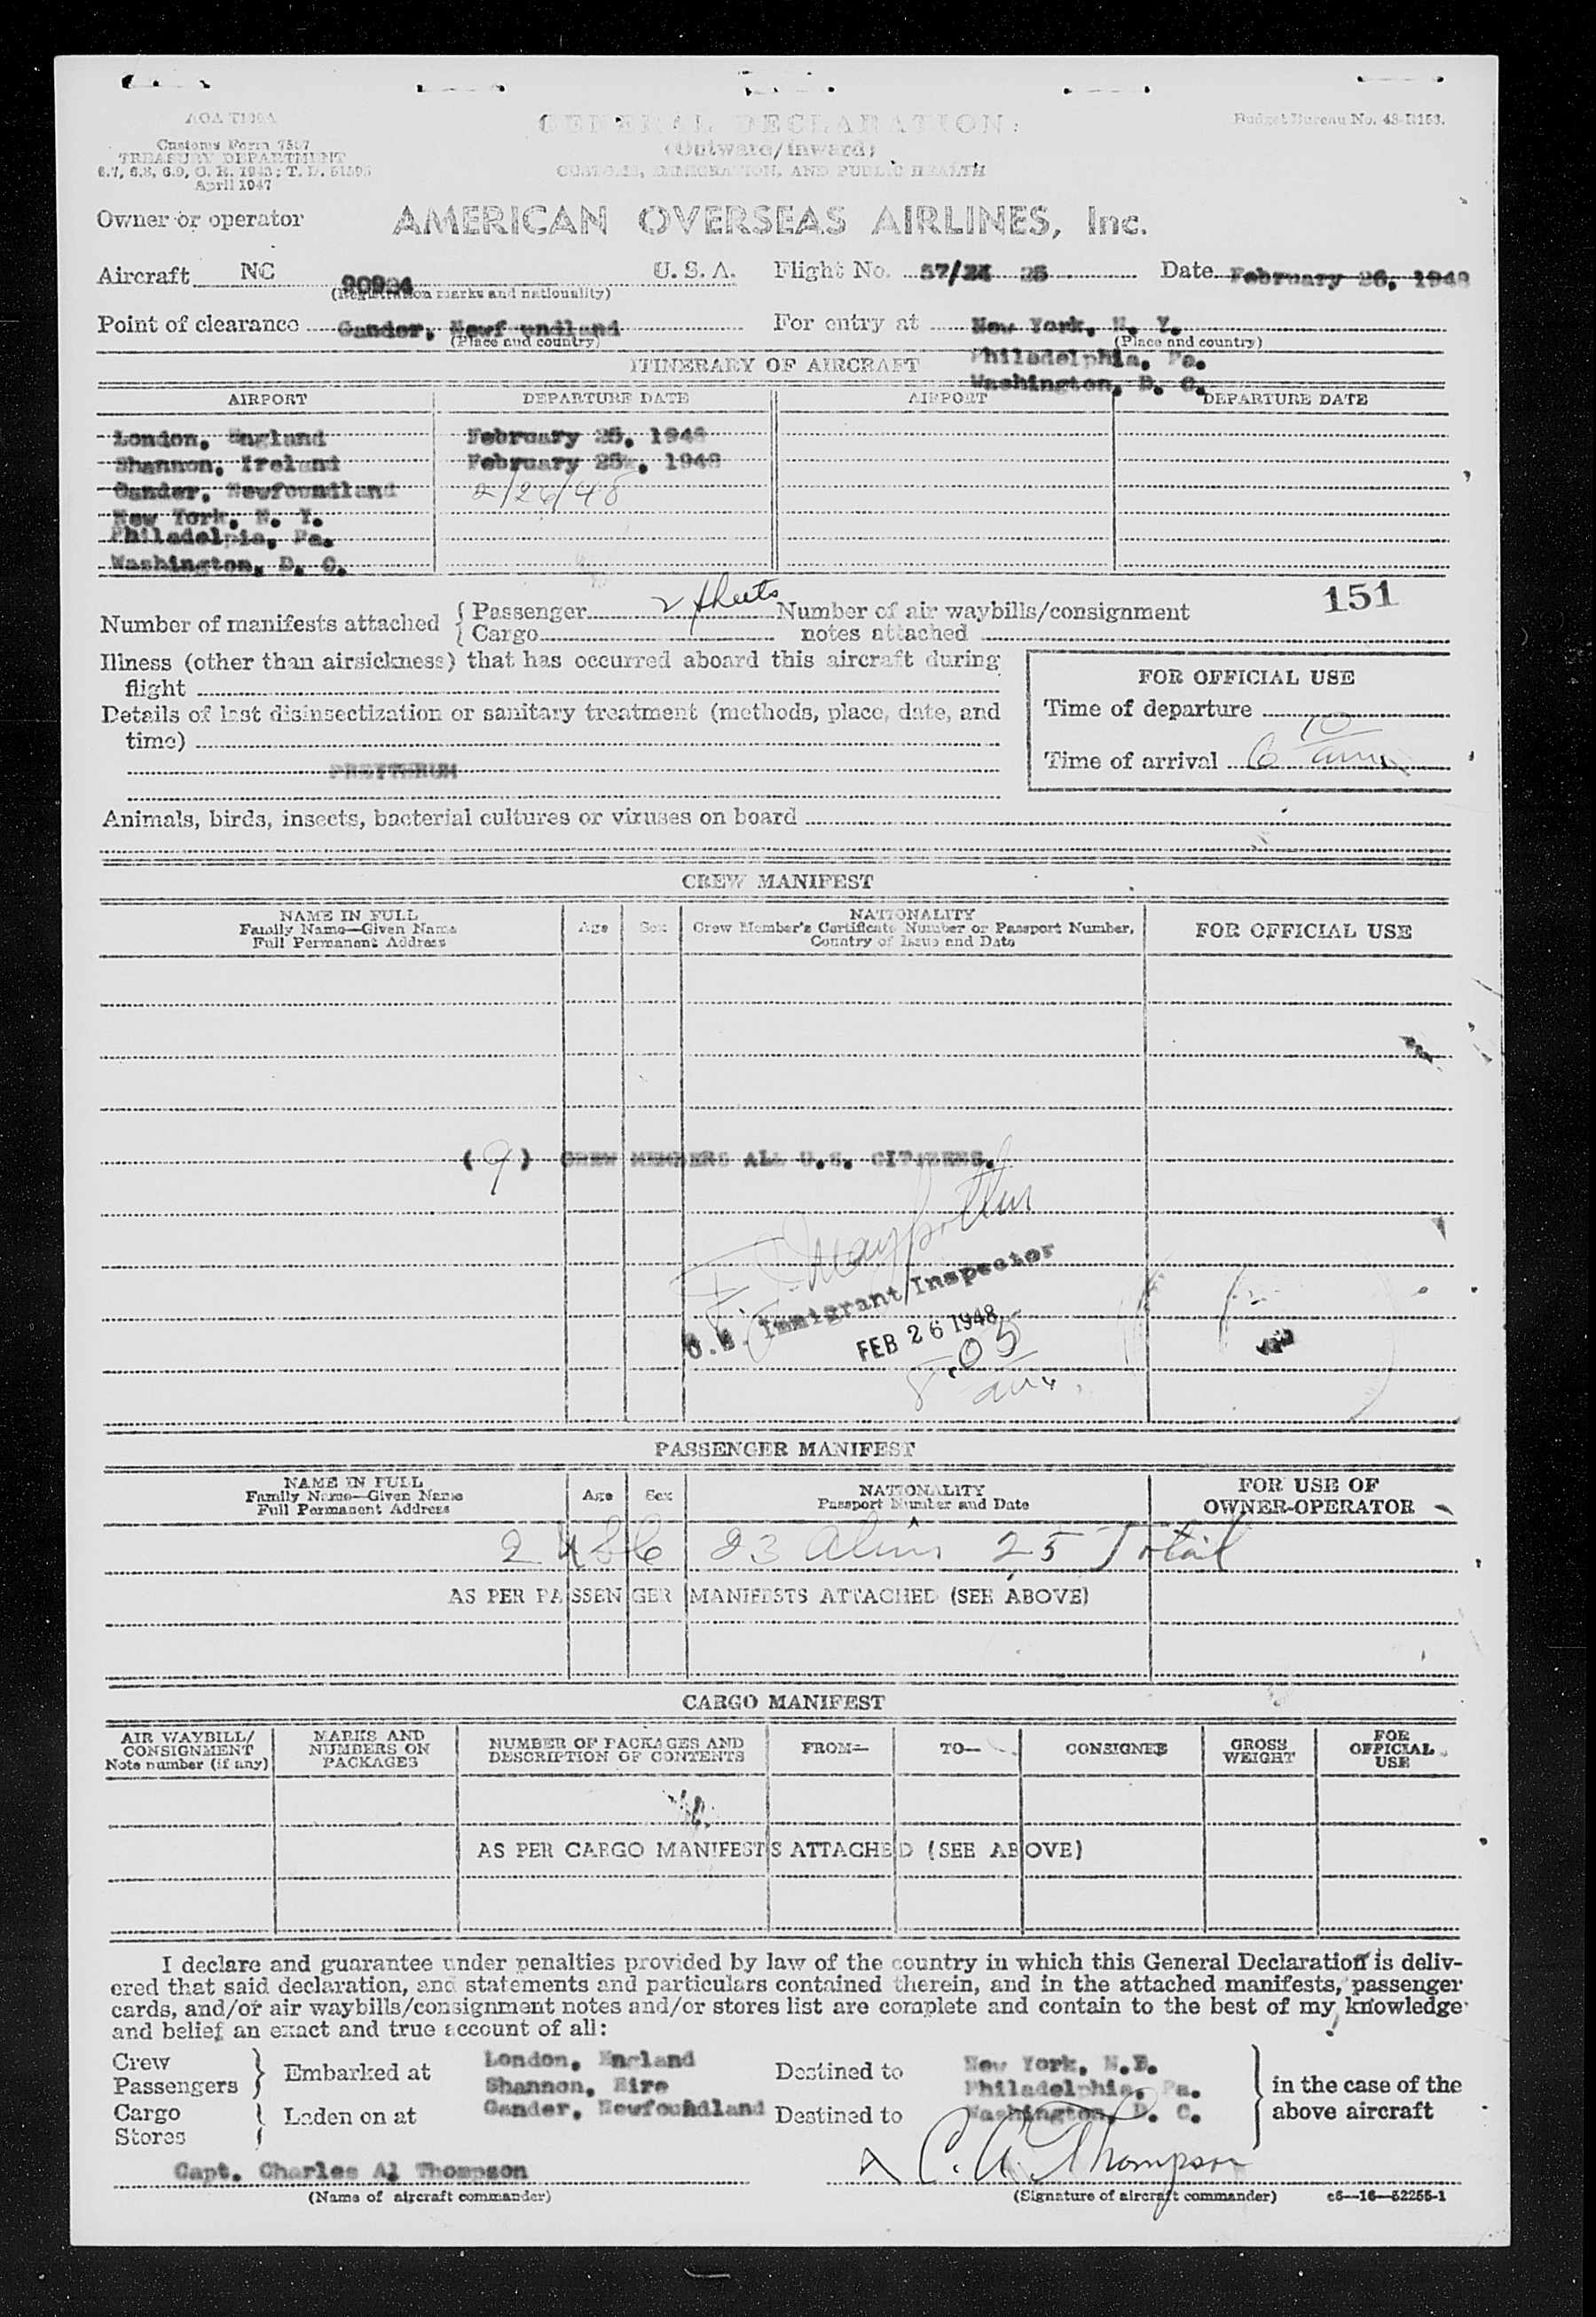 Customs Form 7507
TREASURY DEPARTMENT
April 1947
GENERAL DECLARATION
(Outward/Inward)
CUSTOMS, IMMIGRATION, AND PUBLIC HEALTH
Budget Bureau No.
Owner or operator AMERICAN OVERSEAS AIRLINES, Inc.
Aircraft NC 90924 U. S. A. Flight No. 57/ 25 Date February 26, 1948
(Registration marks and nationality)
Point of clearance Gander, Newfoundland For entry at New York, N. Y.
(Place and country) (Place and country)
Philadelphia, Pa.
ITINERARY OF AIRCRAFT
Washington, D. C.
AIRPORT DEPARTURE DATE AIRPORT DEPARTURE DATE
London, England February 25, 1948
Shannon, Ireland February 25, 1948
Gander, Newfoundland 2/26/48
New York, N. Y.
Philadelpia, Pa.
Washington, D. C.
151
Number of manifests attached { Passenger 2 sheets Number of air waybills/consignment
{ Cargo notes attached
Illness (other than airsickness) that has occurred aboard this aircraft during
flight
FOR OFFICIAL USE
Details of last disinsectization or sanitary treatment (methods, place, date, and
time)
Time of departure
Time of arrival 6 10 am
Animals, birds, insects, bacterial cultures or viruses on board
CREW MANIFEST
NAME IN FULL
Family Name—Given Name
Full Permanent Address
Age
Sex
NATIONALITY
Crew Member's Certificate Number or Passport Number,
Country of Issue and Date
FOR OFFICIAL USE
( 9 ) CREW MEMBERS ALL U.S. CITIZENS.
U.S. Immigrant Inspector
FEB 26 1948
8.05
am.
PASSENGER MANIFEST
NAME IN FULL
Family Name—Given Name
Full Permanent Address
Age
Sex
NATIONALITY
Passport Number and Date
FOR USE OF
OWNER-OPERATOR
2 USC 23 Aliens 25 Total
AS PER PASSENGER MANIFESTS ATTACHED (SEE ABOVE)
CARGO MANIFEST
AIR WAYBILL/
CONSIGNMENT
Note number (if any)
MARKS AND
NUMBERS ON
PACKAGES
NUMBER OF PACKAGES AND
DESCRIPTION OF CONTENTS
FROM—
TO—
CONSIGNEE
GROSS
WEIGHT
FOR
OFFICIAL
USE
AS PER CARGO MANIFESTS ATTACHED (SEE ABOVE)
I declare and guarantee under penalties provided by law of the country in which this General Declaration is deliv-
ered that said declaration, and statements and particulars contained therein, and in the attached manifests, passenger
cards, and/or air waybills/consignment notes and/or stores list are complete and contain to the best of my knowledge
and belief an exact and true account of all:
Crew
Passengers } Embarked at
Cargo
Stores } Laden on at
London, England
Shannon, Eire
Gander, Newfoundland
Destined to
Destined to
New York, N.Y.
Philadelphia, Pa.
Washington, D. C.
} in the case of the
above aircraft
Capt. Charles A. Thompson
(Name of aircraft commander)
C. A. Thompson
(Signature of aircraft commander) c6—16—52255-1